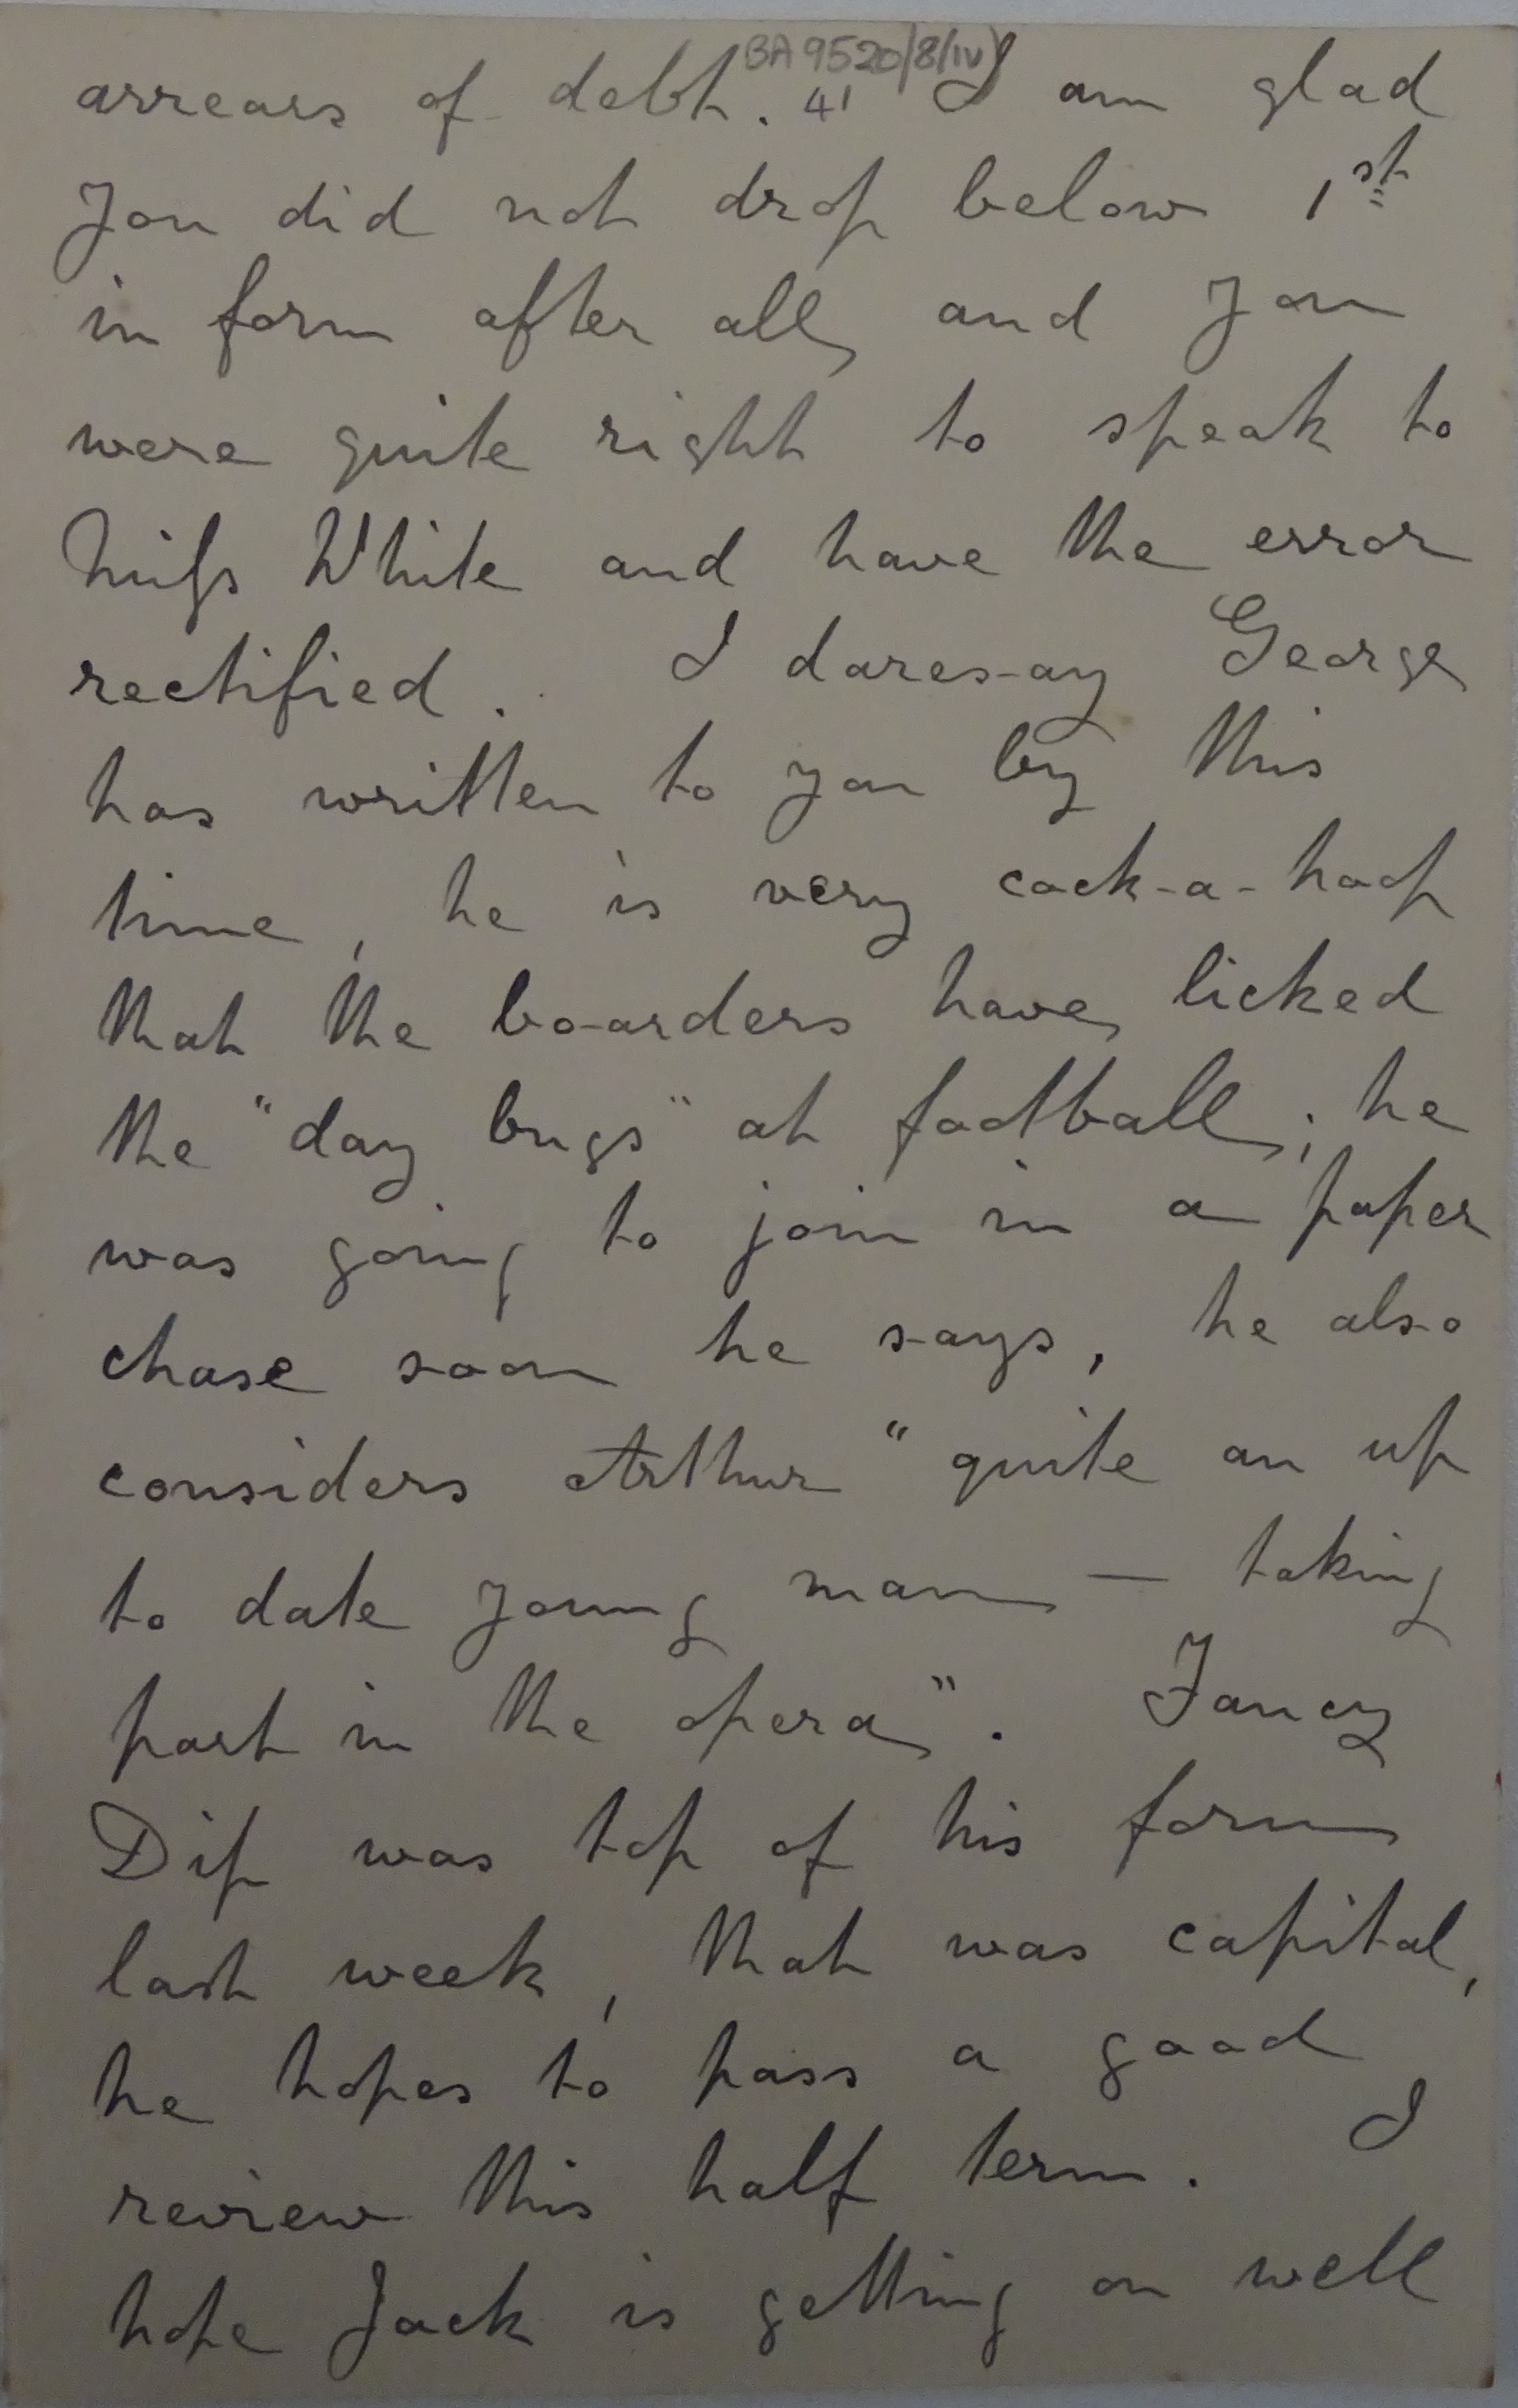 BA 9520/8/iv)
arrears of debt. 41 I am glad
you did not drop below 1st
in form after all, and you
were quite right to speak to
Miss White and have the error
rectified. I daresay George
has written to you by this
time, he is very cock-a-hoop
that the boarders have licked
the "day bugs" at football; he
was going to join in a paper
chase soon he says, he also
considers Arthur "quite an up
to date young man — taking
part in the opera". Fancy
Dip was top of his form
last week, that was capital,
he hopes to pass a good
review this half term. I
hope Jack is getting on well